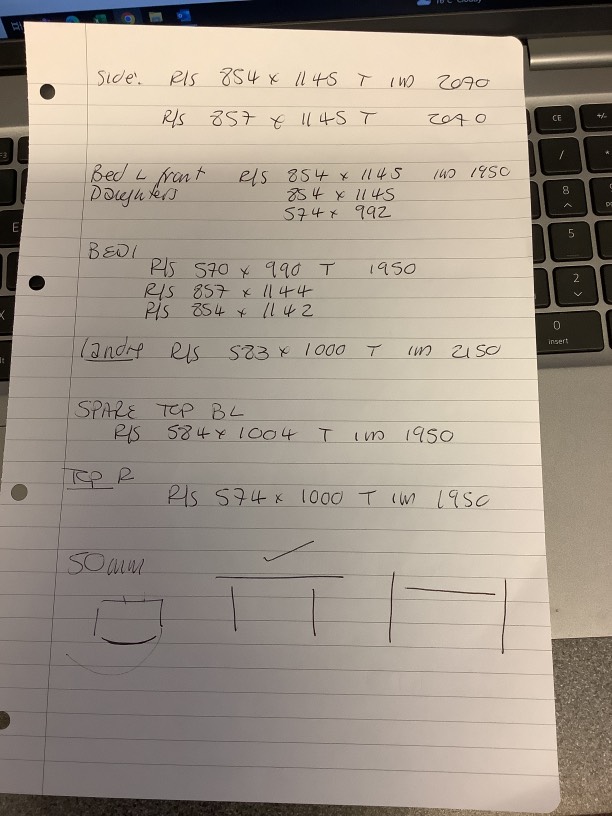 Side. R/S 854 x 1145 T IW 2070
R/S 857 x 1145 T 2070
Bed L front R/S 854 x 1145 IW 1950
Daughters 854 x 1145
574 x 992
BED1
R/S 570 x 990 T 1950
R/S 857 x 1144
R/S 854 x 1142
R/S 583 x 1000 T IW 2150
SPARE TOP BL
R/S 584 x 1004 T IW 1950
TOP R
R/S 574 x 1000 T IW 1950
50mm
CE
+/-
/
8
5
2
0
insert